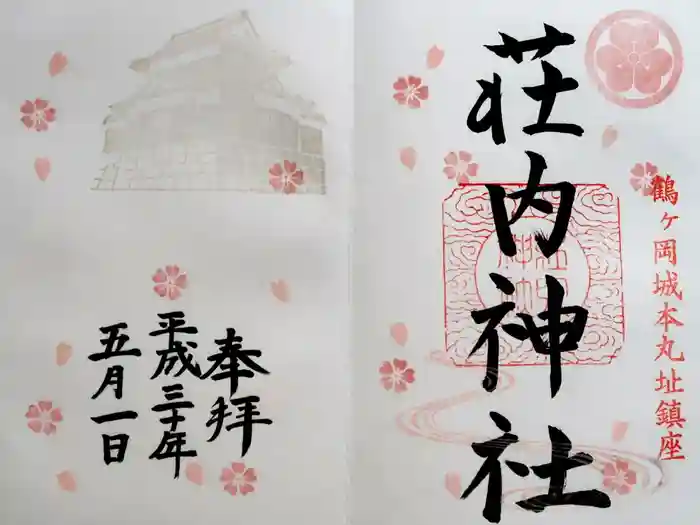 荘内神社
鶴ヶ岡城本丸址鎮座
奉拝
平成三十年
五月一日